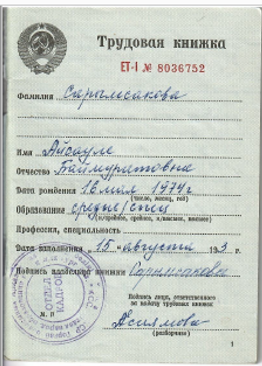 Трудовая книжка
ЕТ-I № 8036752
Фамилия Сарымсакова
Имя Айсауле
Отчество Баймуратовна
Дата рождения 16 мая 1974г
(число, месяц, год)
Образование средне/спец
Профессия, специальность
Дата заполнения „15“ августа 19 3 г.
Подпись владельца книжки Сарымсакова
Подпись лица, ответственного
за выдачу трудовых книжек
Асиямова
(разборчиво)
М. П
ОТДЕЛ
КАДРОВ
1